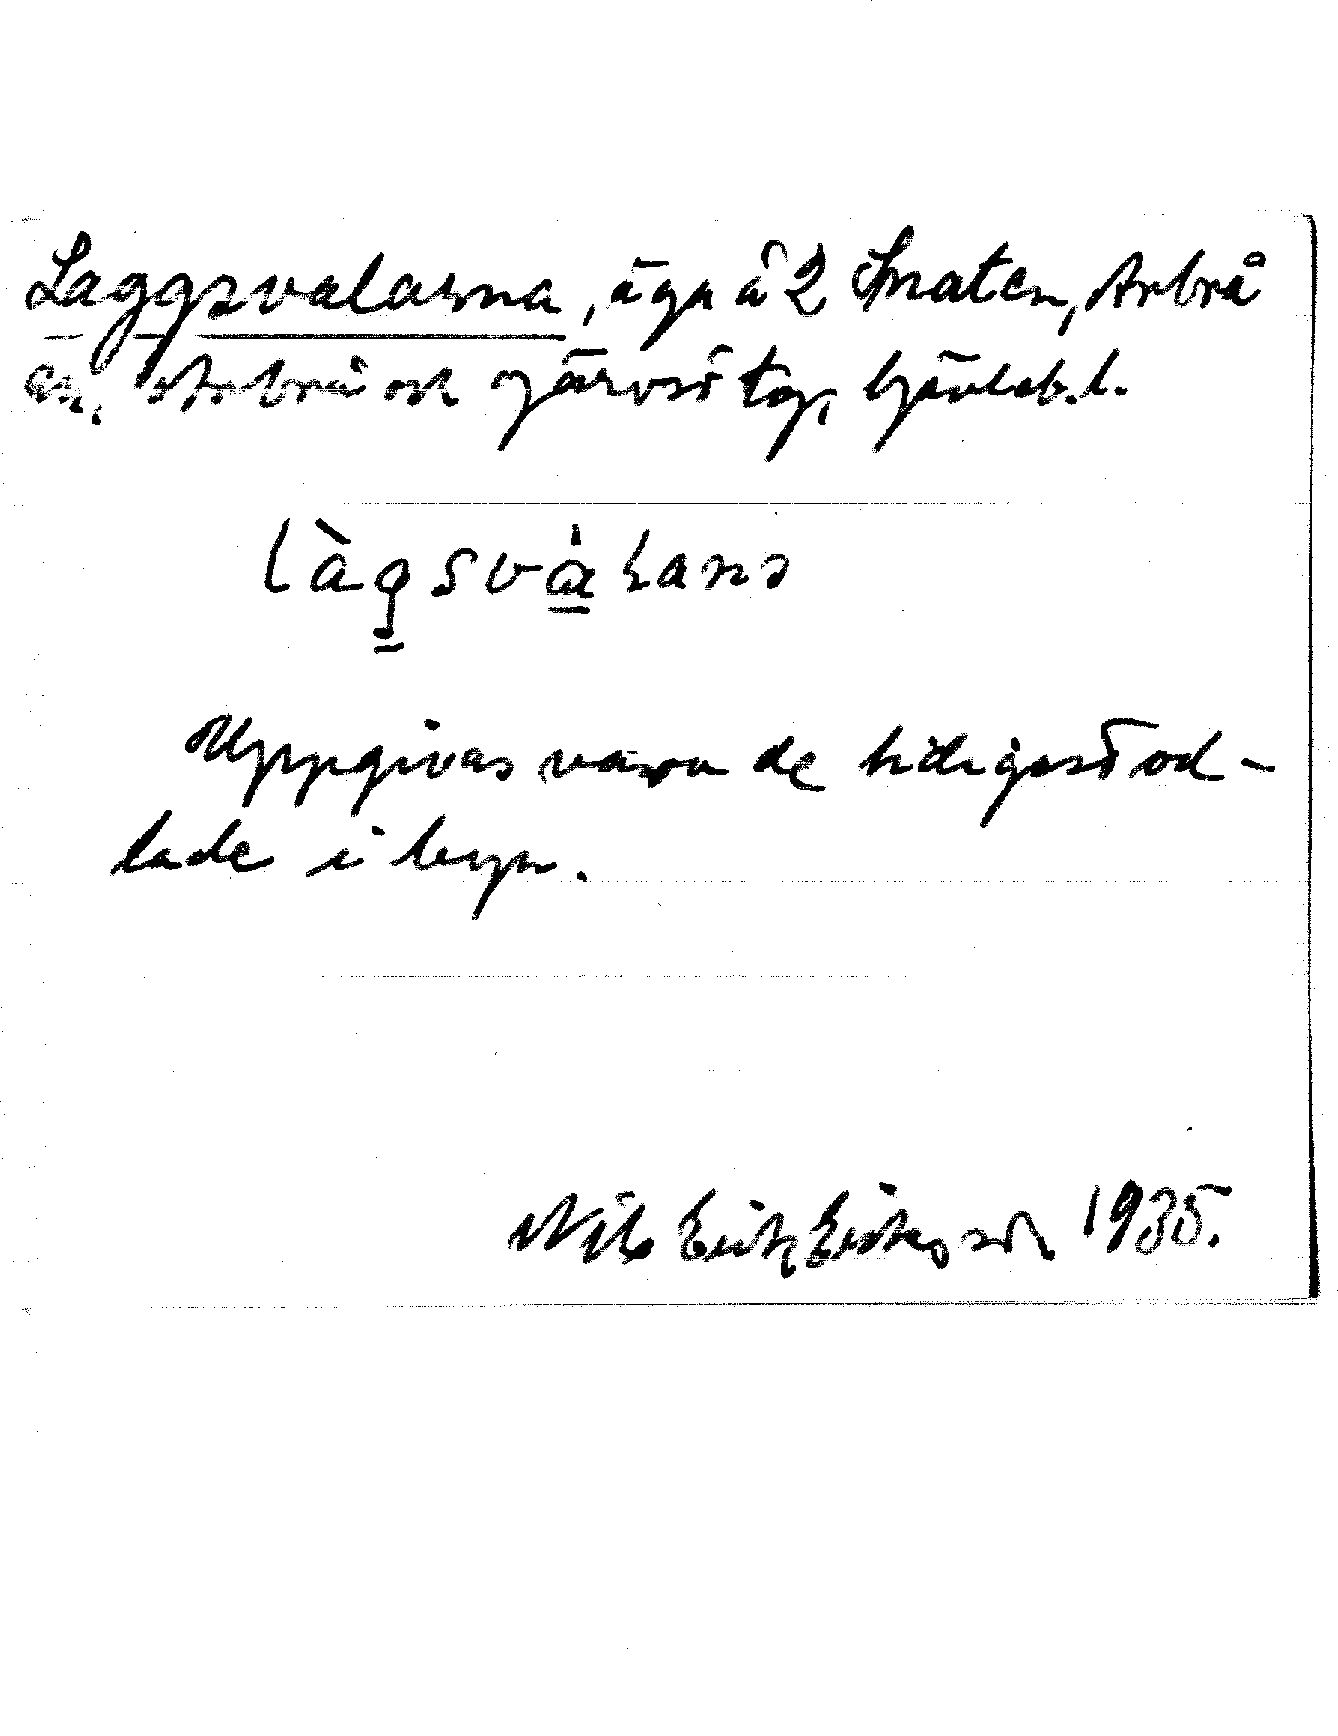 Laggsvalarna, äga å 2 Snaten, Arbrå
sn, Arbrå och Järvsö tg, Gävleb.l.
làgsvàLaṇa
Uppgivas vara de tidigast od-
lade i byn.
Nils Erik Eriksson 1935.